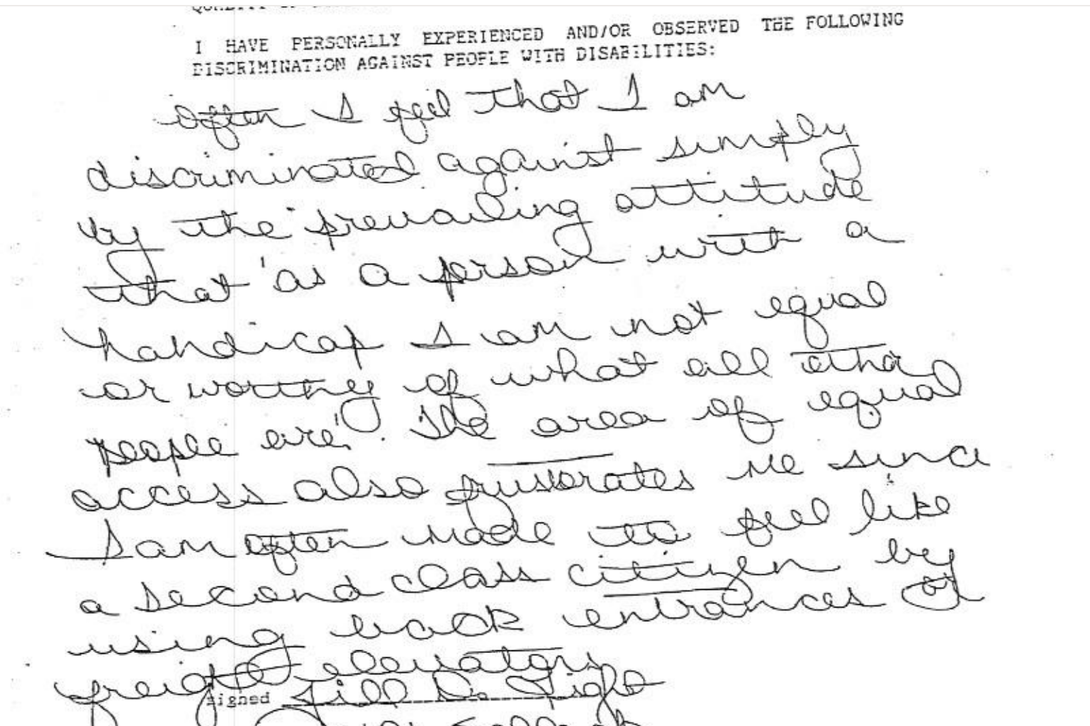 I HAVE PERSONALLY EXPERIENCED AND/OR OBSERVED THE FOLLOWING
DISCRIMINATION AGAINST PEOPLE WITH DISABILITIES:
often I feel that I am
discriminated against simply
by the "prevailing attitude
that 'as a person with a
handicap I am not equal
or worthy of what all other
people are'. The area of equal
access also frustrates me since
I am often made to feel like
a second class citizen by
using back entrances or
freight elevators
signed Jill